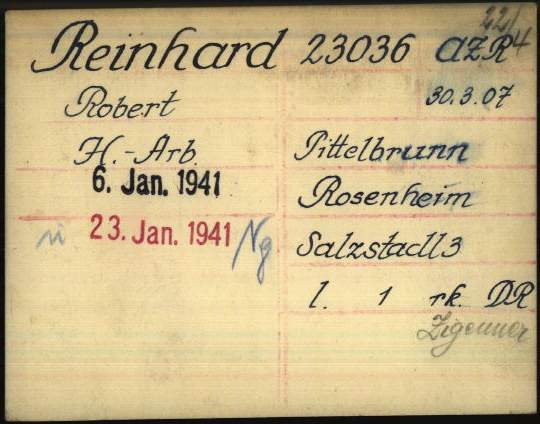 22/4
Reinhard 23036 AZR
Robert 30.3.07
H.-Arb. Pittelbrunn
6. Jan. 1941
Rosenheim
23. Jan. 1941 Ng.
Salzstadl 3
l. 1 rk. DR
Zigeuner